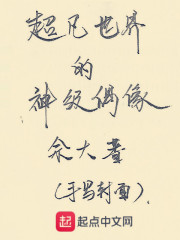 超凡世界
的
神级偶像
余大著
(手写封面)
起 起点中文网